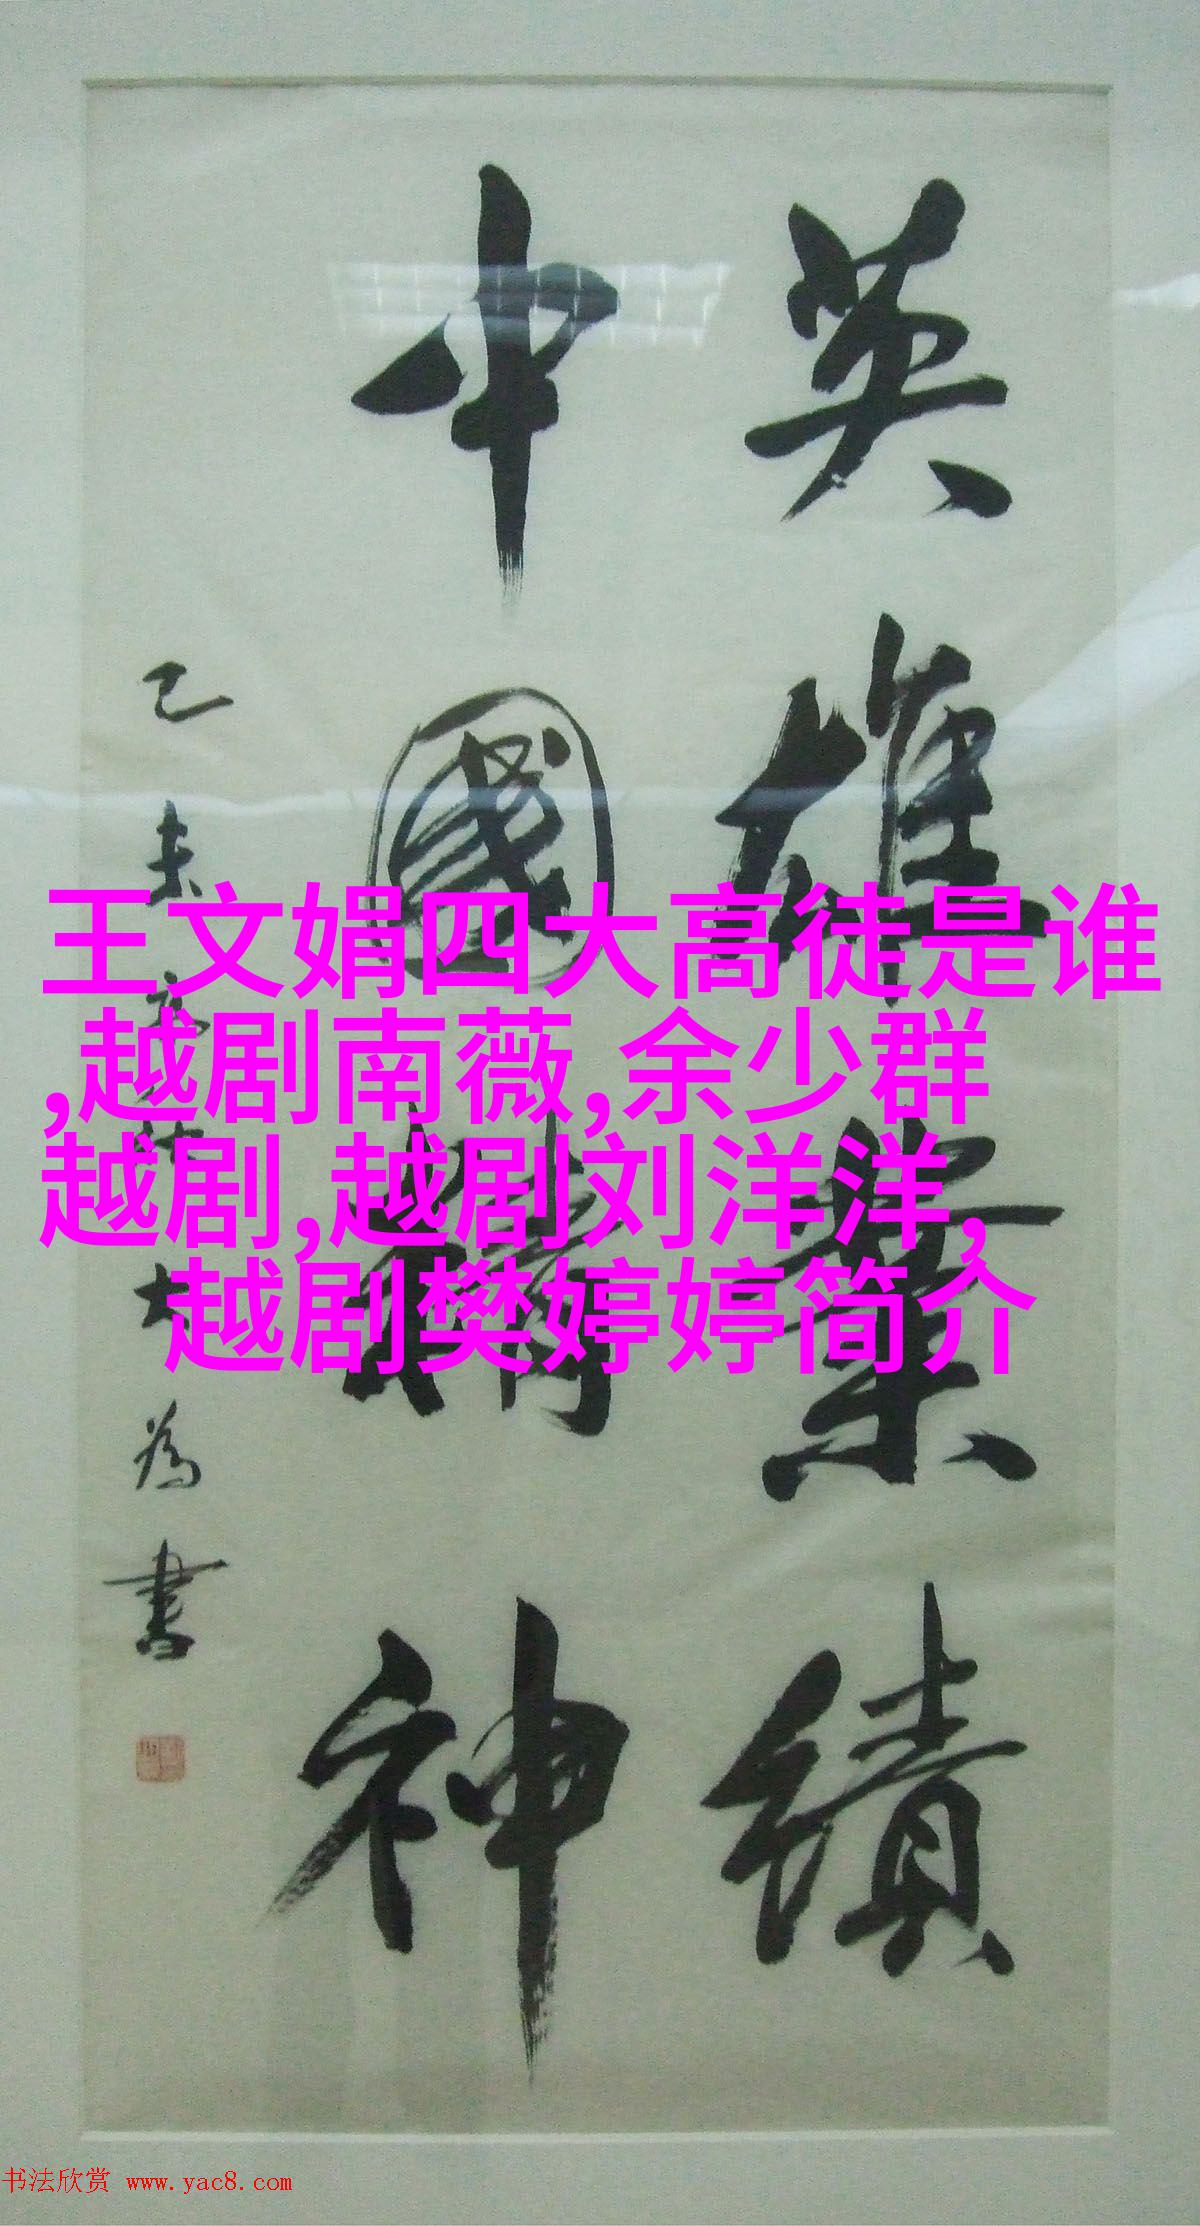 英雄業績
中國精神
未
為書
王文娟四大高徒是谁
,越剧南薇,余少群
越剧,越剧刘洋洋,
越剧樊婷婷简介
书法欣赏 www.yac8.com